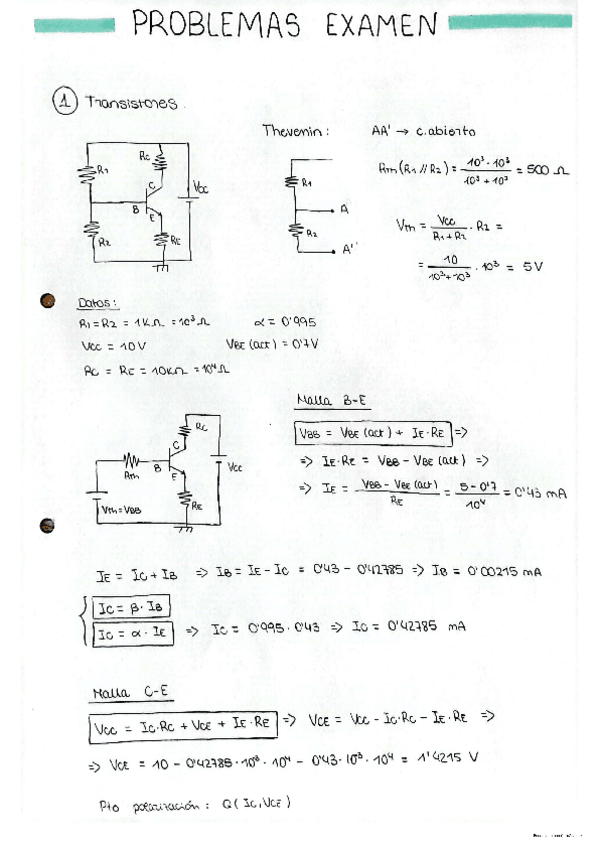 PROBLEMAS EXAMEN
1 Transistores.
Thevenin: AA' → c.abierto
R1 RC C B E R2 RE VCC
R1 A R2 A'
Rth (R1 // R2) = 10³ · 10³ / 10³ + 10³ = 500 Ω
Vth = Vcc / R1 + R2 · R2 =
= 10 / 10³+10³ · 10³ = 5V
Datos:
R1 = R2 = 1KΩ = 10³Ω α = 0'995
Vcc = 10V VBE (act) = 0'7V
RC = RE = 10KΩ = 10⁴Ω
RC C B E Rth RE Vcc Vth = VBB
Malla B-E
VBB = VBE (act) + IE·RE =>
=> IE·RE = VBB - VBE (act) =>
=> IE = VBB - VBE (act) / RE = 5 - 0'7 / 10⁴ = 0'43 mA
IE = IC + IB => IB = IE - IC = 0'43 - 0'42785 => IB = 0'00215 mA
IC = β · IB
IC = α · IE => IC = 0'995 · 0'43 => IC = 0'42785 mA
Malla C-E
VCC = IC·RC + VCE + IE·RE => VCE = Vcc - IC·RC - IE·RE =>
=> VCE = 10 - 0'42785·10³·10⁴ - 0'43·10³·10⁴ = 1'4215 V
Pto polarización: Q(IC, VCE)